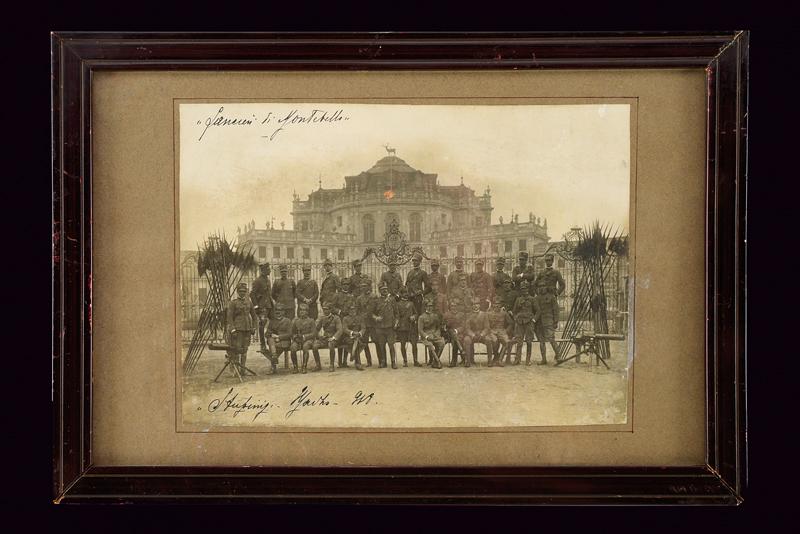 "Lancieri di Montebello"
"Stupinigi - Marzo - 918.